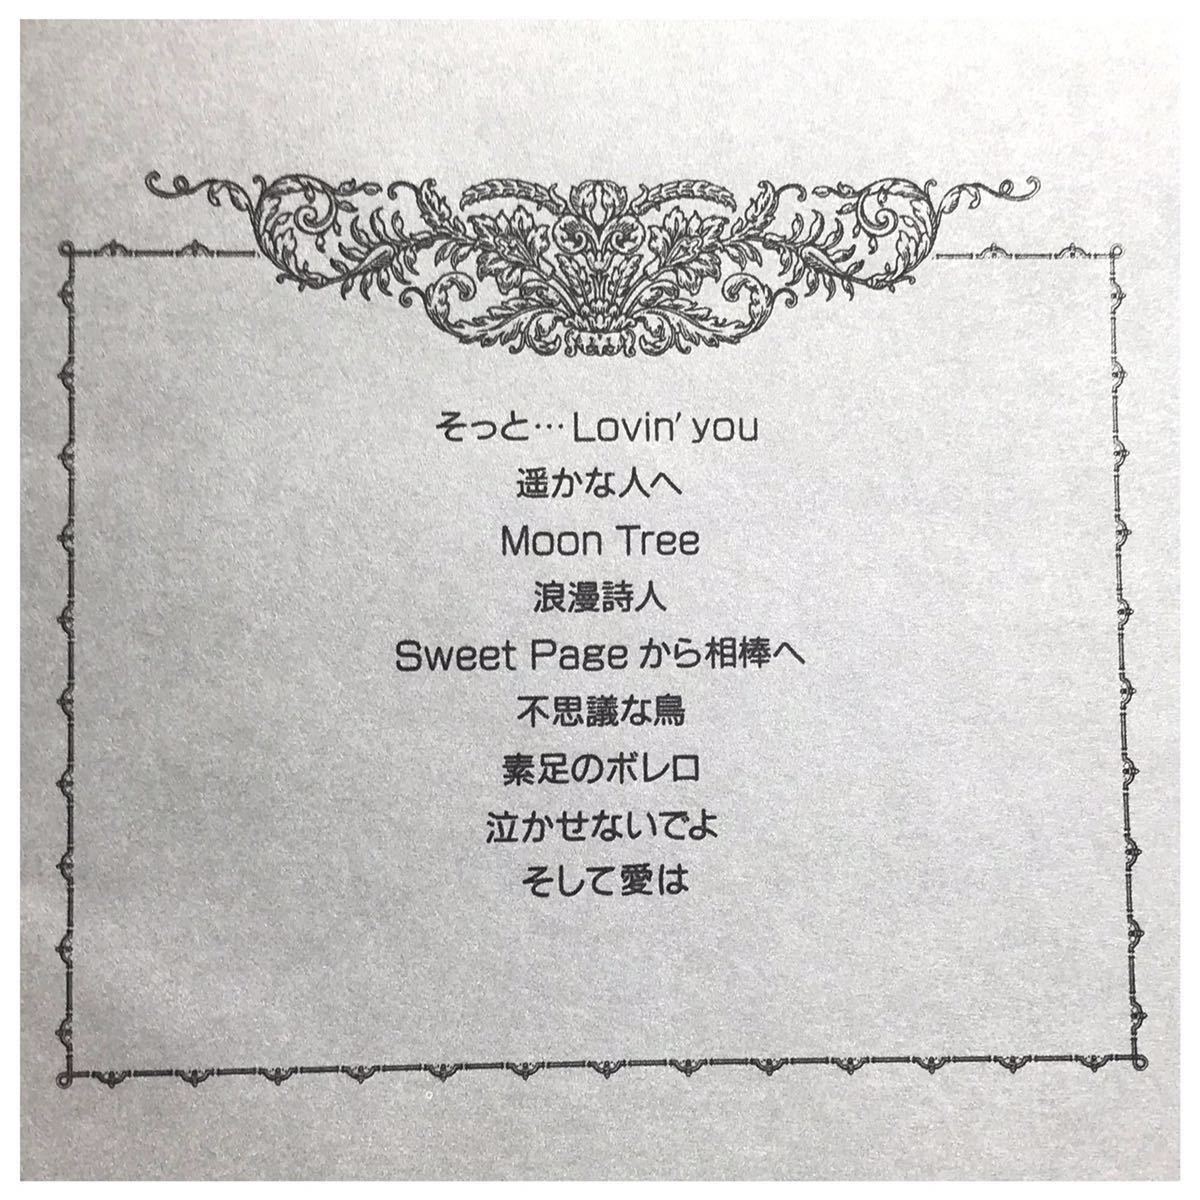 そっと…Lovin' you
遥かな人へ
Moon Tree
浪漫詩人
Sweet Page から相棒へ
不思議な鳥
素足のボレロ
泣かせないでよ
そして愛は